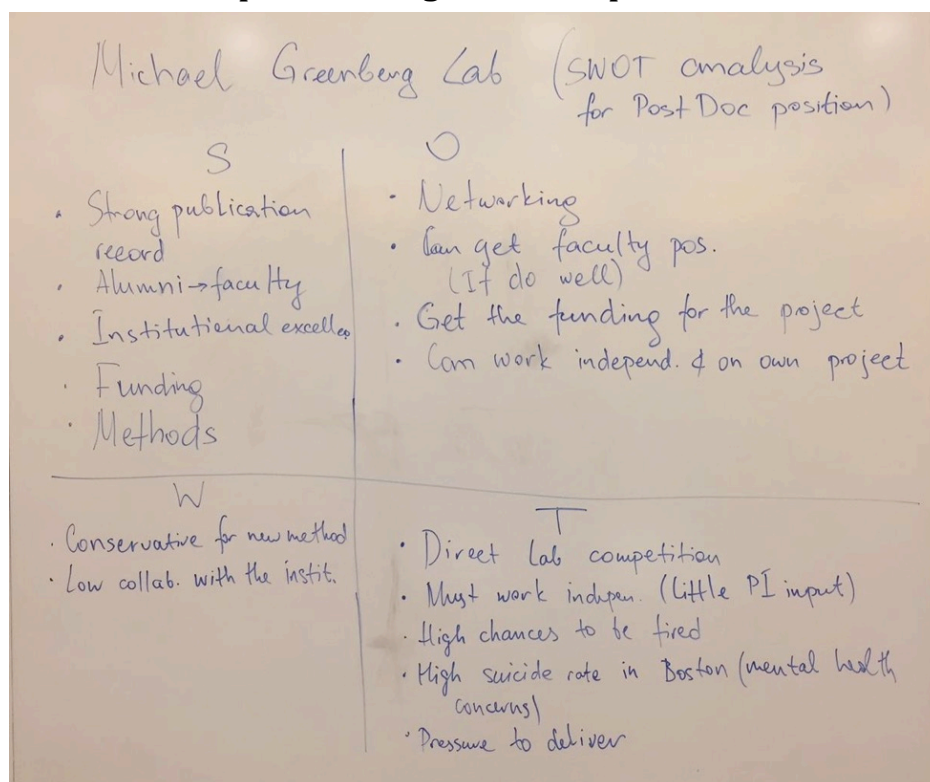 Michael Greenberg Lab (SWOT analysis
for PostDoc position)
S
• Strong publication
record
• Alumni→faculty
• Institutional excellce
• Funding
• Methods
O
• Networking
• Can get faculty pos.
(If do well)
• Get the funding for the project
• Can work independ. & on own project
W
• Conservative for new method
• Low collab. with the instit.
T
• Direct Lab competition
• Must work indepen. (Little PI input)
• High chances to be fired
• High suicide rate in Boston (mental health
concerns)
• Pressure to deliver